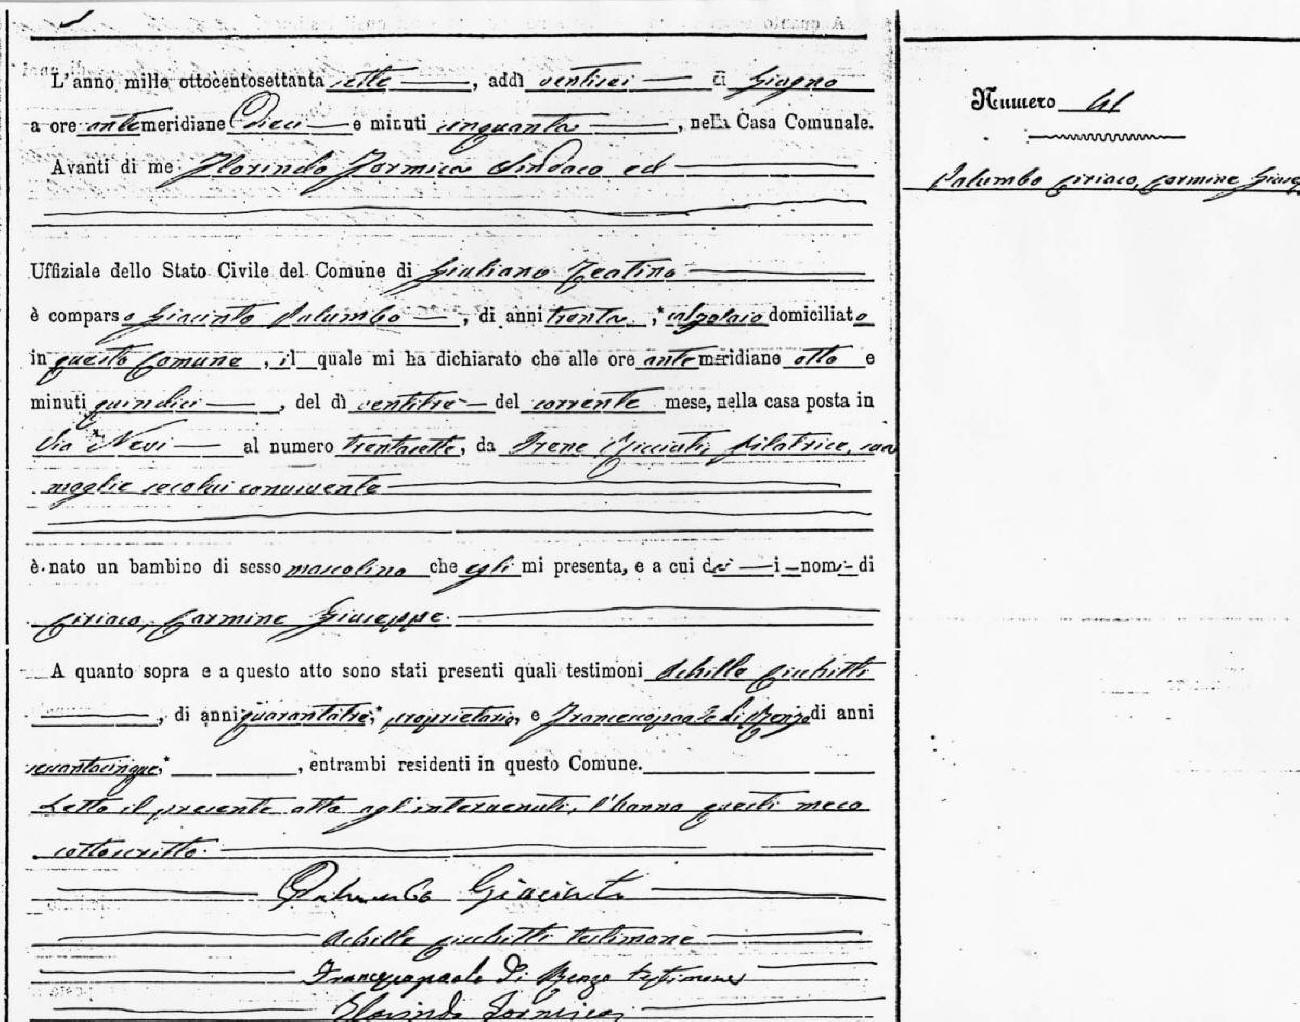 L'anno mille ottocentosettanta sette, addì ventisei di Giugno
a ore antemeridiane Dieci e minuti cinquanta, nella Casa Comunale.
Avanti di me Florindo Formica Sindaco ed
Uffiziale dello Stato Civile del Comune di Giuliano Teatino
è comparso Giacinto Palumbo, di anni trenta, calzolaio domiciliato
in questo Comune, il quale mi ha dichiarato che alle ore antemeridiane otto e
minuti quindici, del dì ventitrè del corrente mese, nella casa posta in
Via Nevi al numero trentasette, da Irene filatrice, sua
moglie secolui convivente
è nato un bambino di sesso mascolino che egli mi presenta, e a cui dà i nomi di
Ciriaco, Carmine Giuseppe
A quanto sopra e a questo atto sono stati presenti quali testimoni Achille Cicchitti
, di anni quarantatre, proprietario, e Francescopaolo di Renzo di anni
sessantacinque, entrambi residenti in questo Comune.
Letto il presente atto agl'intervenuti, l'hanno questi meco
sottoscritto.
Palumbo Giacinto
Achille Cicchitti testimone
Francescopaolo Di Renzo testimone
Florindo Formica
Numero 41
Palumbo Ciriaco, Carmine Gius